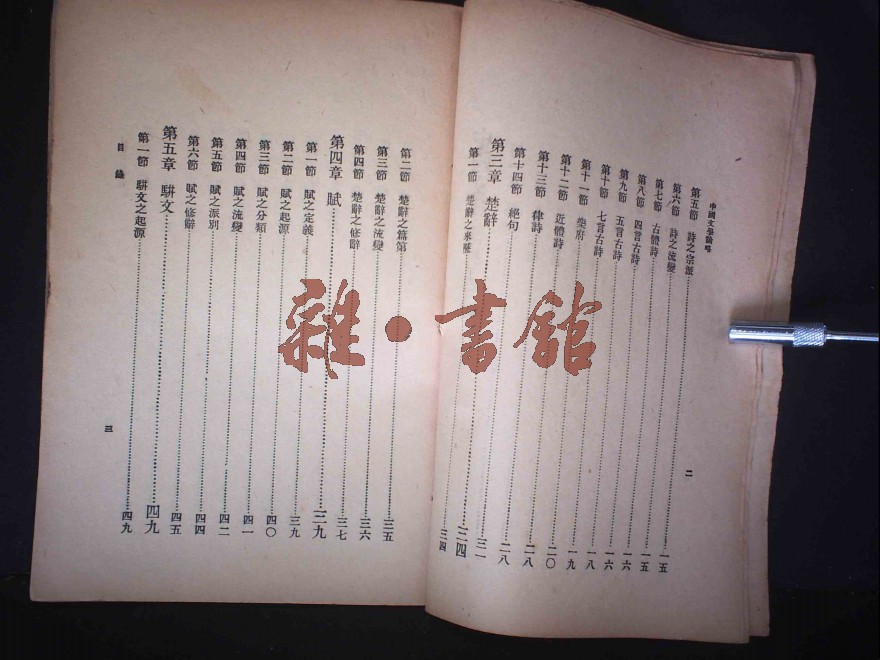 中國文學論略
第五節 詩之宗派 一五
第六節 詩之流變 一五
第七節 古體詩 一五
第八節 四言古詩 一六
第九節 五言古詩 一六
第十節 七言古詩 一八
第十一節 樂府 一九
第十二節 近體詩 二〇
第十三節 律詩 二八
第十四節 絕句 二八
第三章 楚辭 三一
第一節 楚辭之來歷 三四
二
第二節 楚辭之篇第 三五
第三節 楚辭之流變 三六
第四節 楚辭之修辭 三七
第四章 賦 三九
第一節 賦之定義 三九
第二節 賦之起源 四〇
第三節 賦之分類 四一
第四節 賦之流變 四二
第五節 賦之派別 四四
第六節 賦之修辭 四五
第五章 駢文 四九
第一節 駢文之起源 四九
目錄
三
雜·書館